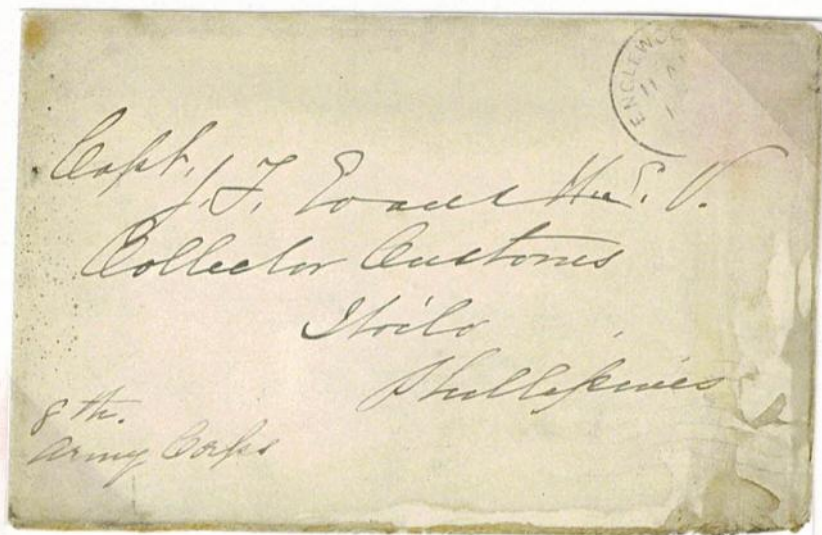 ENGLEWO
11 A
Capt.
J. F. Evans U.S. V.
Collector Customs
Iloilo
Phillipines
8th.
Army Corps